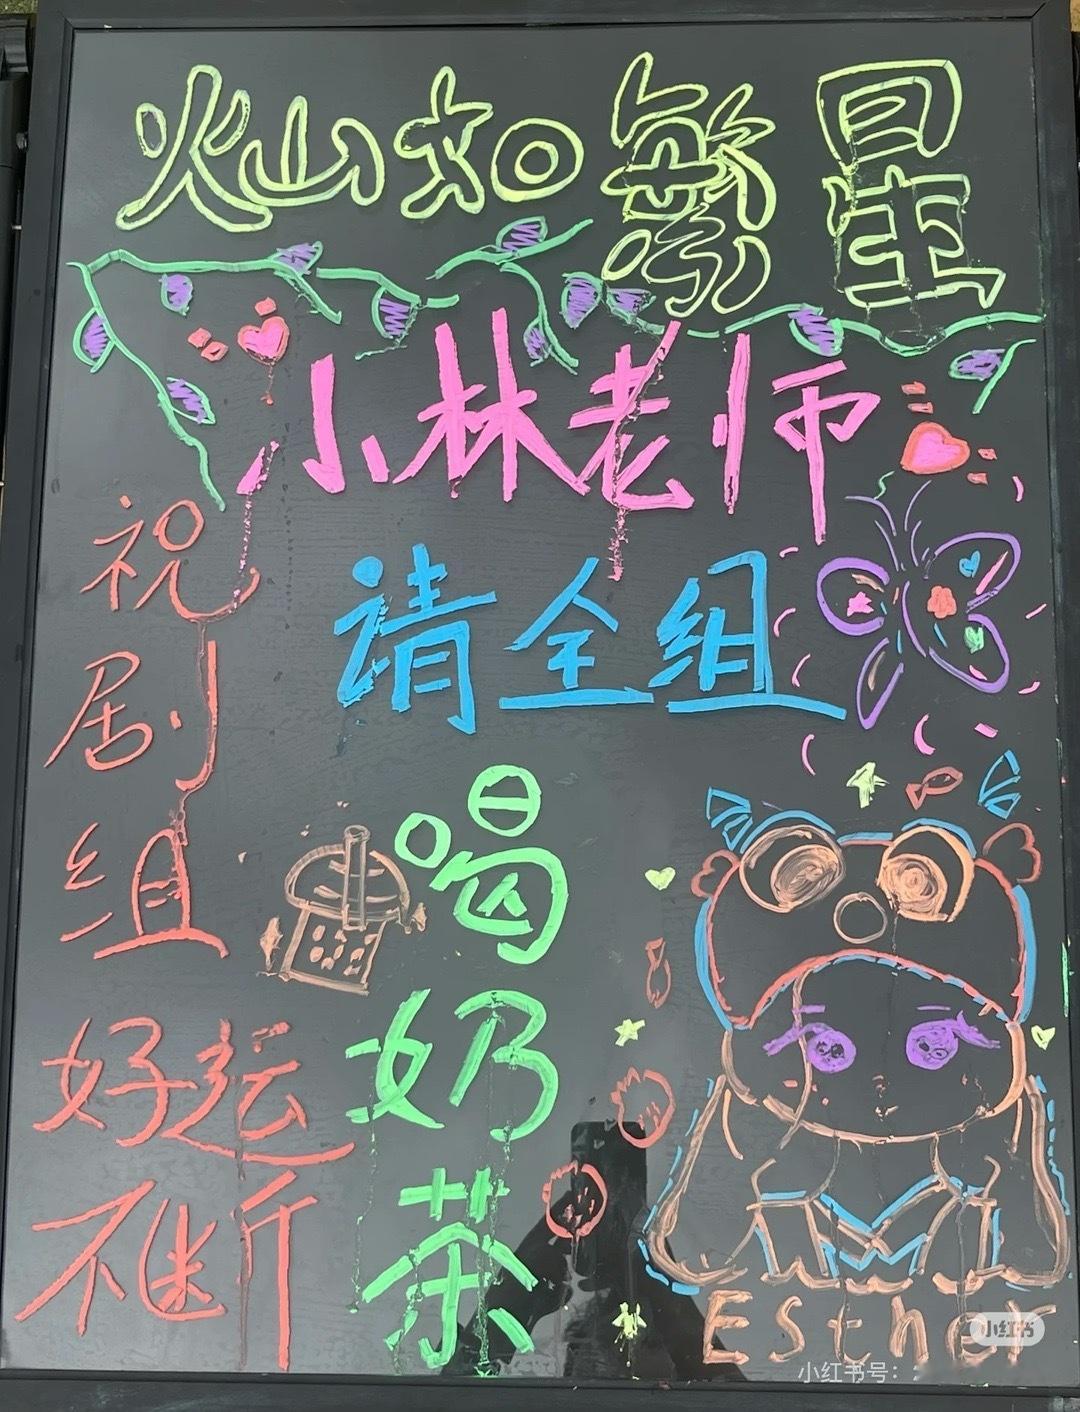 灿如繁星
小林老师
请全组
喝奶茶
祝剧组
好运
不断
Esther
小红书
小红书号：